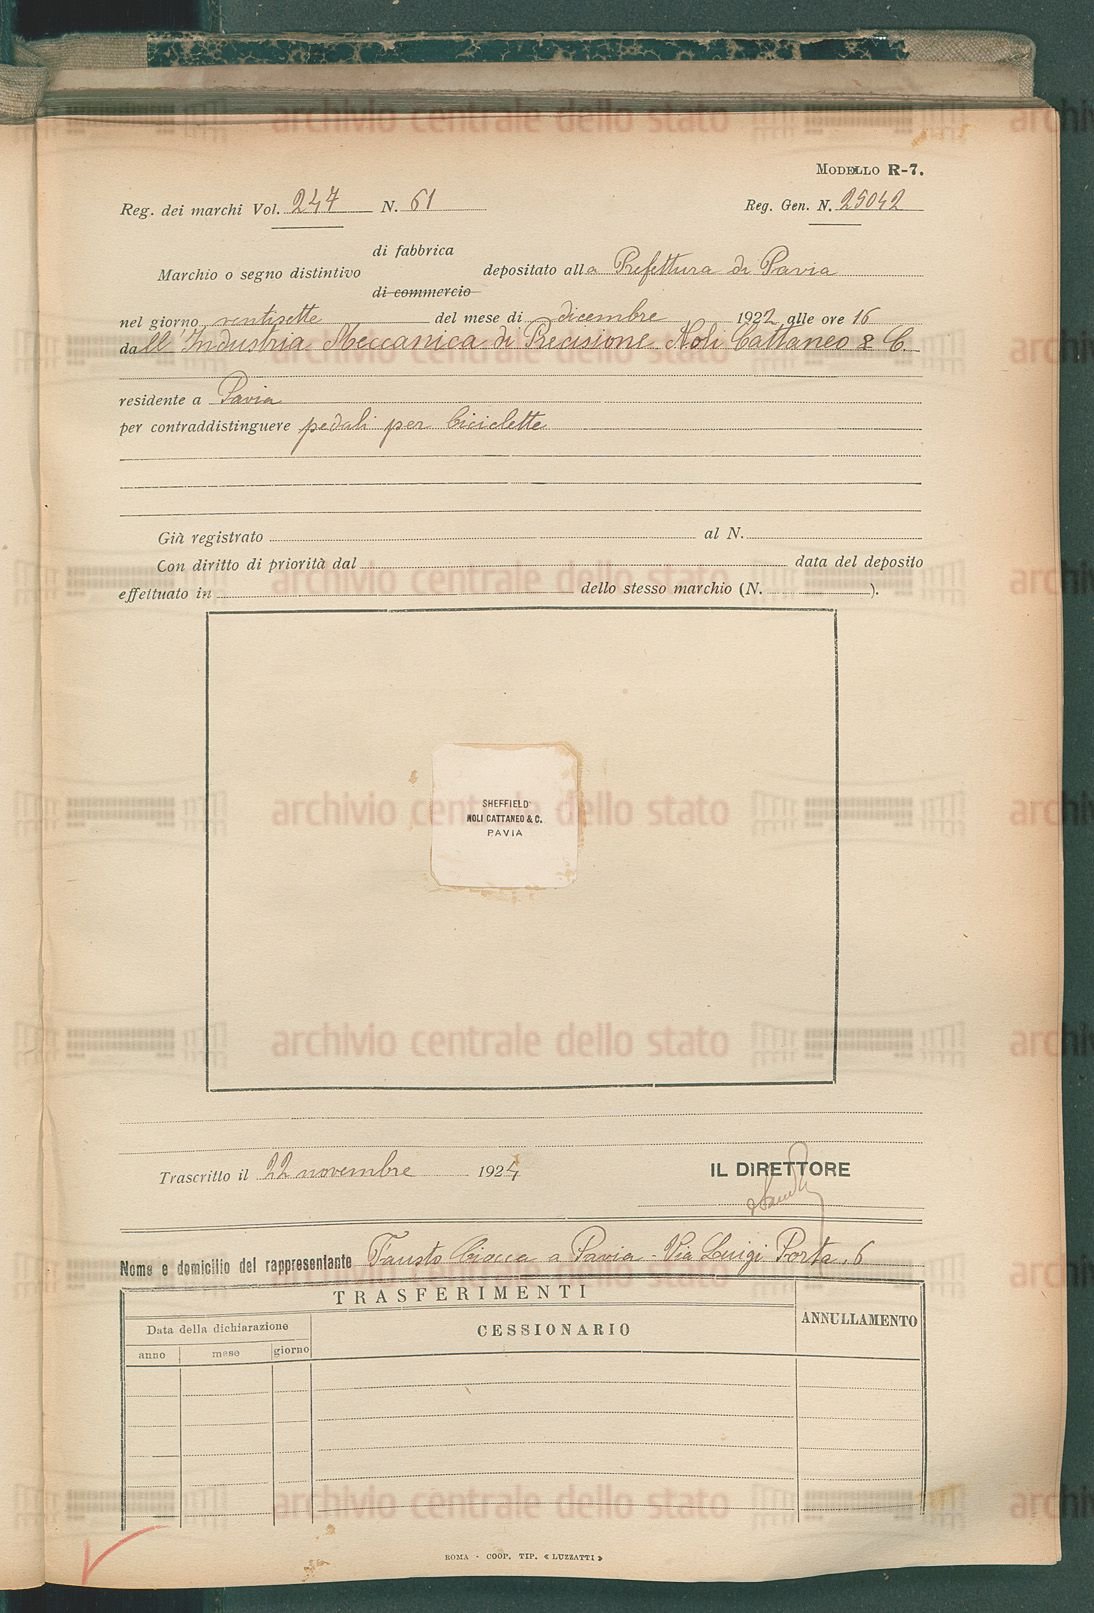 MODELLO R-7.
Reg. dei marchi Vol. 247 N. 61 Reg. Gen. N. 25042
di fabbrica
Marchio o segno distintivo depositato alla Prefettura di Pavia
di commercio
nel giorno ventisette del mese di dicembre 1922 alle ore 16
dall'Industria Meccanica di Precisione Noli Cattaneo & C.
residente a Pavia
per contraddistinguere pedali per biciclette
Già registrato al N.
Con diritto di priorità dal data del deposito
effettuato in dello stesso marchio (N. ).
SHEFFIELD
NOLI CATTANEO & C.
PAVIA
Trascritto il 22 novembre 1924 IL DIRETTORE
Nome e domicilio del rappresentante Fausto Ciocca a Pavia - Via Luigi Porta, 6
TRASFERIMENTI
Data della dichiarazione CESSIONARIO ANNULLAMENTO
anno mese giorno
ROMA - COOP. TIP. « LUZZATTI »
archivio centrale dello stato